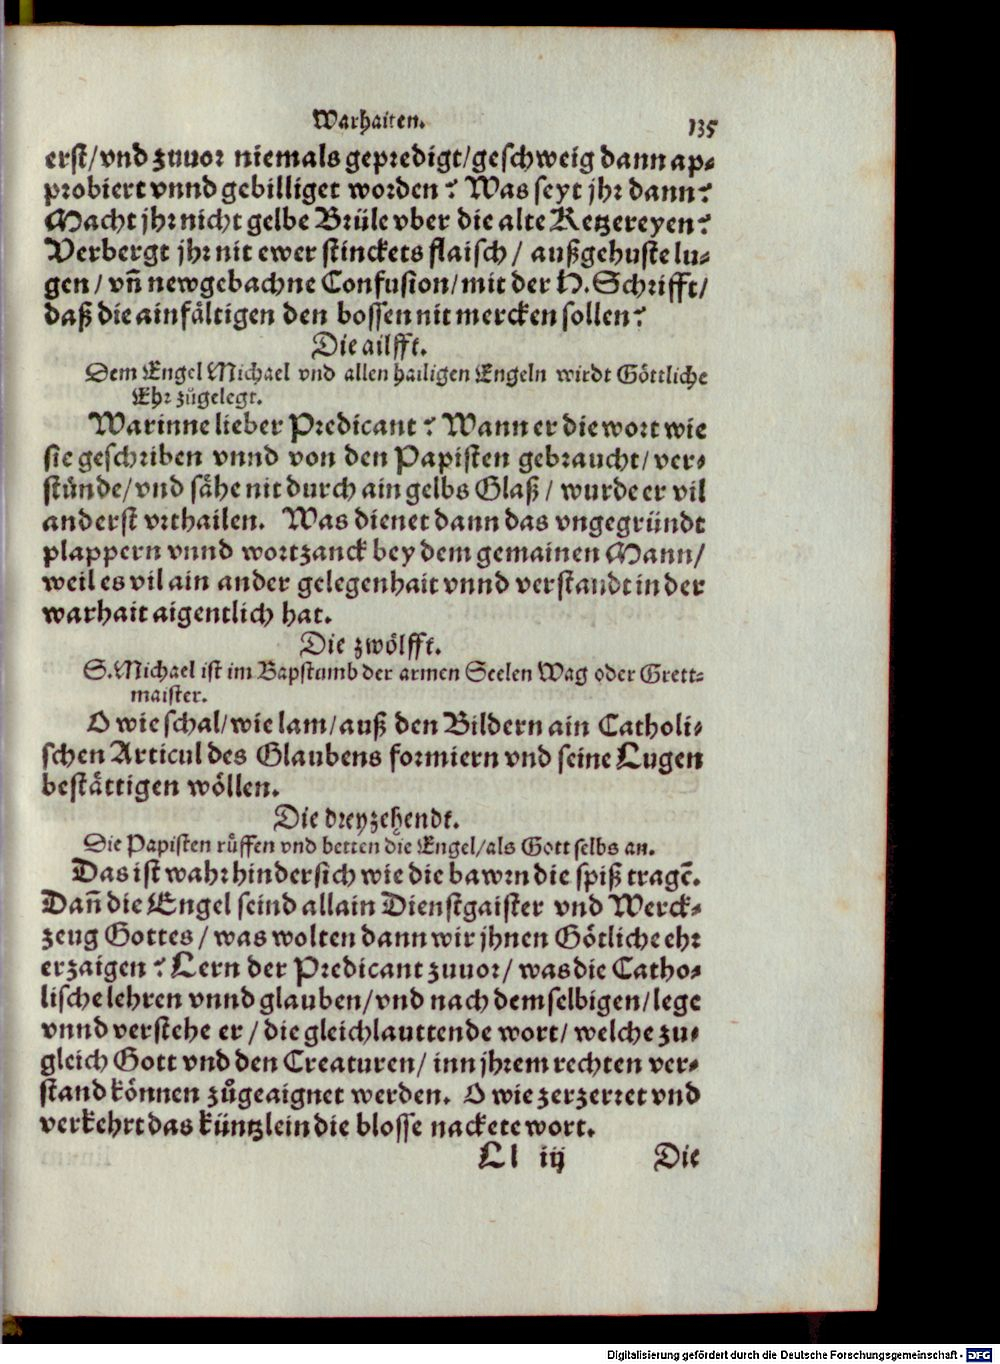 Warhaiten. 135
erst/vnd zuuor niemals gepredigt/geschweig dann ap⸗
probiert vnnd gebilliget worden? Was seyt jhr dann?
Macht jhr nicht gelbe Brüle vber die alte Ketzereyen?
Verbergt jhr nit ewer stinckets flaisch / außgehuste lu⸗
gen / vn̄ newgebachne Confusion/mit der H. Schrifft/
daß die ainfältigen den bossen nit mercken sollen?
Die ailfft.
Dem Engel Michael vnd allen hailigen Engeln wirdt Göttliche
Ehr zůgelegt.
Warinne lieber Predicant? Wann er die wort wie
sie geschriben vnnd von den Papisten gebraucht/ver⸗
stünde/vnd sähe nit durch ain gelbs Glaß / wurde er vil
anderst vrthailen. Was dienet dann das vngegründt
plappern vnnd wortzanck bey dem gemainen Mann/
weil es vil ain ander gelegenhait vnnd verstandt in der
warhait aigentlich hat.
Die zwölfft.
S. Michael ist im Bapstumb der armen Seelen Wag oder Grett⸗
maister.
O wie schal/wie lam/auß den Bildern ain Catholi⸗
schen Articul des Glaubens formiern vnd seine Lugen
bestättigen wöllen.
Die dreyzehendt.
Die Papisten růffen vnd betten die Engel/als Gott selbs an.
Das ist wahr hindersich wie die bawrn die spiß tragē.
Dan̄ die Engel seind allain Dienstgaister vnd Werck⸗
zeug Gottes / was wolten dann wir jhnen Götliche ehr
erzaigen? Lern der Predicant zuuor/ was die Catho⸗
lische lehren vnnd glauben/vnd nach demselbigen/lege
vnnd verstehe er / die gleichlauttende wort/ welche zu⸗
gleich Gott vnd den Creaturen/ inn jhrem rechten ver⸗
stand können zůgeaignet werden. O wie zerzerret vnd
verkehrt das küntzlein die blosse nackete wort.
Ll iij Die
Digitalisierung gefördert durch die Deutsche Forschungsgemeinschaft - DFG